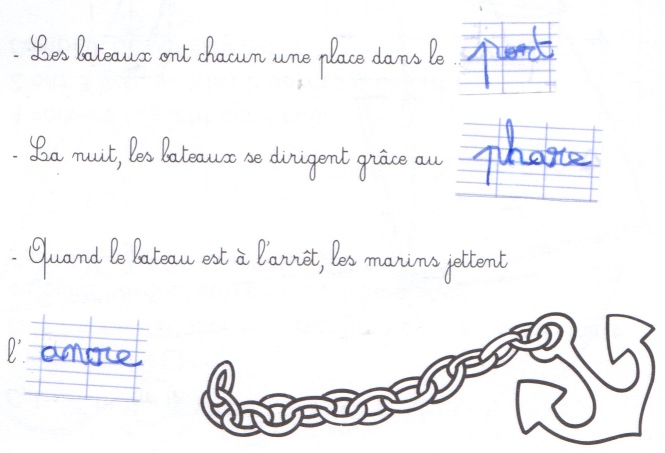 - Les bateaux ont chacun une place dans le .. port
- La nuit, les bateaux se dirigent grâce au phare
- Quand le bateau est à l'arrêt, les marins jettent
l'. ancre